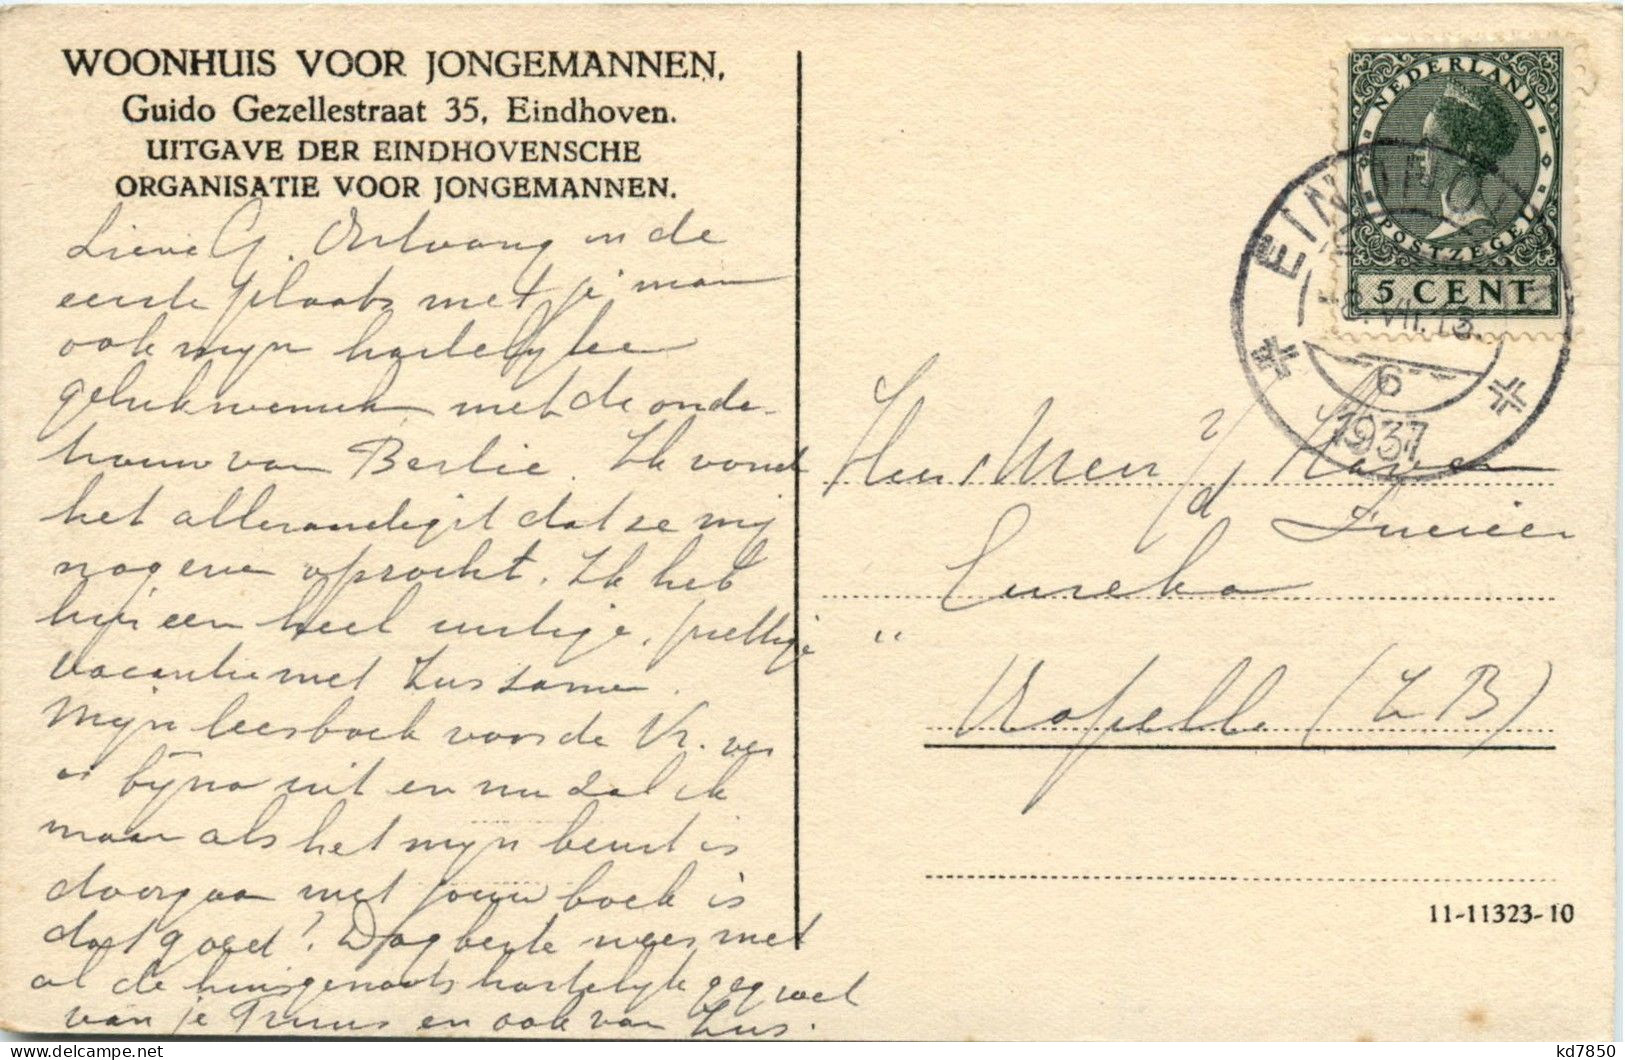 WOONHUIS VOOR JONGEMANNEN,
Guido Gezellestraat 35, Eindhoven.
UITGAVE DER EINDHOVENSCHE
ORGANISATIE VOOR JONGEMANNEN.
Lieve G. Ontvang in de
eerste plaats met je man
ook mijn hartelijke
gelukwensch met de onder-
trouw van Bertie. Ik vond
het alleraardigst dat ze mij
nog even opzocht. Ik heb
hier een heel rustige, prettige
vacantie met Zus samen.
Mijn leesboek voor de Vr. ver
" bijna uit en nu zal ik
maar als het mijn beurt is
doorgaan met jouw boek is
dat goed? Dag beste wees met
al de huisgenoots hartelijk geg
van je Truus en ook van Zus.
NEDERLAND
POSTZEGEL
5 CENT
EINDHOVEN
8.VII.13.
6
1937
Mevr v/d
Eureka
"
Kapelle (Z B)
11-11323-10
kd7850